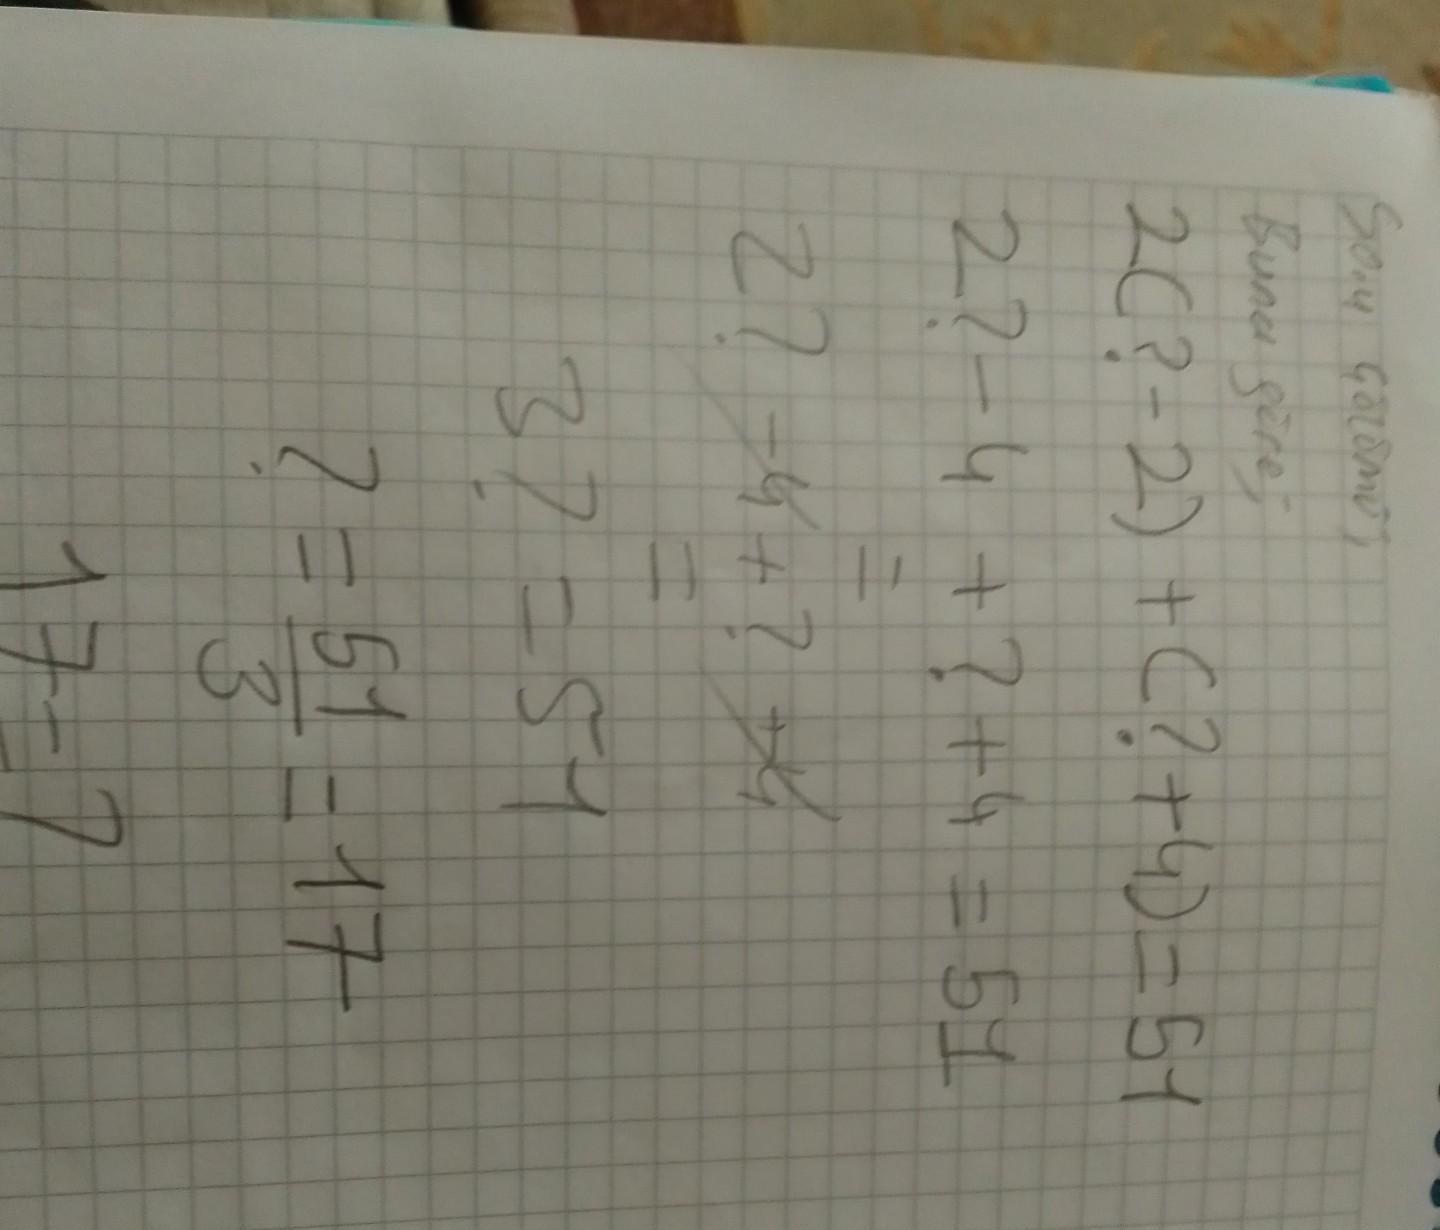 Buna göre;
2(? - 2) + (? + 4) = 51
2? - 4 + ? + 4 = 51
=
2? - 4 + ? + 4
=
3? = 51
? = 51/3 = 17
17 = ?